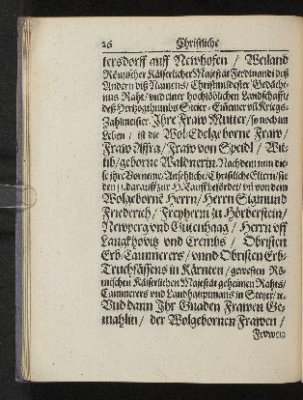 26 Christliche
tersdorff auff Newhofen / Weiland
Römischer Käiserlicher Majestät Ferdinandi diß
Andern diß Namens / Christmildester Gedächt-
nus Raht / und einer hochlöblichen Landschafft
deß Hertzogthumbs Steier
Zahlmeister. Ihre Fraw Mutter / so noch im
Leben / ist die Wol-Edelgeborne Fraw /
Fraw Affra / Fraw von Speidl / Wit-
tib / geborne Waldnerin. Nachdem nun die-
se ihre Vorneme / Ansehliche / Christliche Eltern / sie
den darauff zur H. Tauff befördert / uñ von dem
Wolgeborne Herrn / Herrn Sigmund
Friederich / Freyherrn zu Herberstein /
Newperg und Gutenhaag / Herrn off
Lanckhovitz und Crembs / Obristen
Erb-Cammerers / unnd Obristen Erb-
Truchsässens in Kärnten / gewesten Rö-
mischen Käiserlichen Majestät geheimen Rahts /
Cammerers und Landhauptmans in Steyer / ꝛc.
Und dann Ihr Gnaden Frawen Ge-
mahlin / der Wolgebornen Frawen /
Frawen